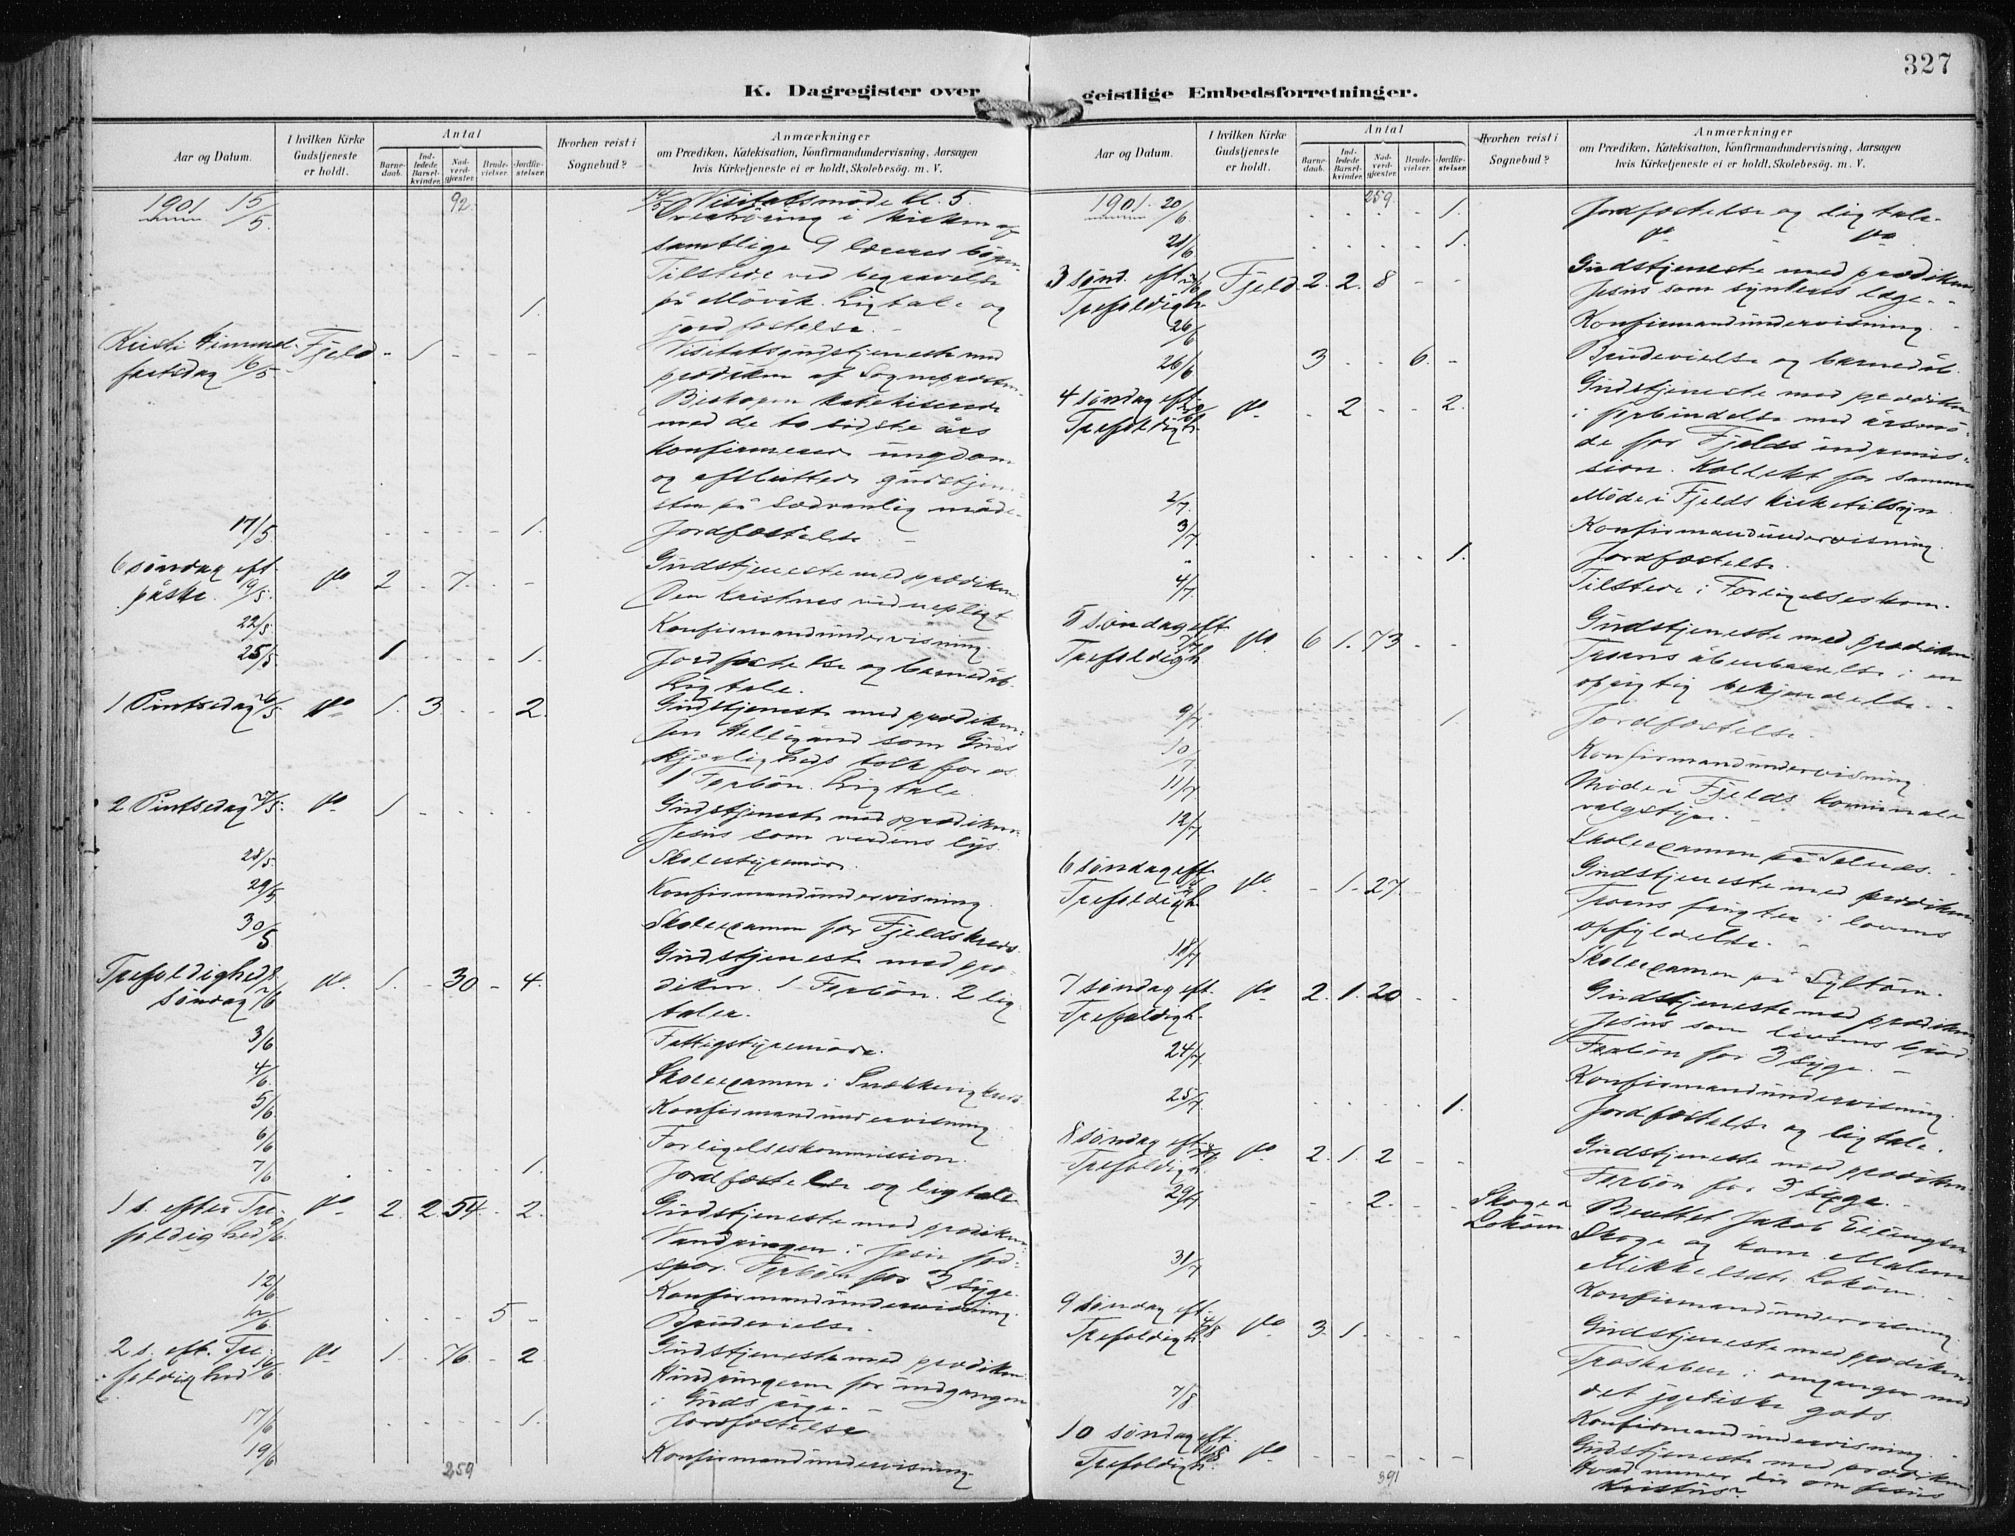 327
K. Dagregister over geistlige Embedsforretninger.
Aar og Datum.
I hvilken Kirke Gudstjeneste er holdt.
Antal
Barnedaab.
Indledede Barselkvinder.
Nadverdgjæster.
Brudevielser.
Jordfæstelser.
Hvorhen reist i Sognebud?
Anmærkninger
om Prædiken, Katekisation, Konfirmandundervisning, Aarsagen
hvis Kirketjeneste ei er holdt, Skolebesög. m. V.
1901 15/5 92. 14/5 Visitatsmøde kl. 5.
Overhøring i kirken af
samtlige 9 læreres bøger.
Tilstede ved begravelse
1. på Møvik. Ligtale og
jordfæstelse.
Kristi Himmelfartsdag 16/5 Fjeld - 1 - - - Visitatsgudstjeneste med
prædiken af Sognepræsten.
Biskopen katekiserede
med de to sidste års
konfirmerede ungdom
og afsluttede gudstjenesten
på sædvanlig måde.
17/5 1. Jordfæstelse.
6 søndag eft. påske 19/5 do 2 - 7. - - Gudstjeneste med prædiken.
Den kristnes vidnepligt
22/5 Konfirmandundervisning.
25/5 1 1. Jordfæstelse og barnedåb.
Ligtale.
1 Pintsedag 26/5 do 1. 3 - - 2. Gudstjeneste med prædiken.
Den Helligånd som Guds
kjærligheds tolk for os.
1 Forbøn. Ligtale.
2 Pintsedag 27/5 do 1 - - - - Gudstjeneste med prædiken.
Jesus som verdens lys.
28/5 Skolestyremøde.
29/5 Konfirmandundervisning.
30/5 Skoleexamen for Fjelds kreds.
Trefoldighedssøndag 2/6 do. 1. - 30 - 4. Gudstjeneste med prædiken.
1 Forbøn. 2 ligtaler.
3/6 Fattigstyremøde.
4/6 Skoleexamen i Snekkevig kreds
5/6 Konfirmandundervisning.
6/6 Forligelseskommission.
7/6 1. Jordfæstelse og ligtale
1 s. efter Trefoldighed 9/6 do 2. 2. 54 - 2. Gudstjeneste med prædiken.
Vandringen i Jesu fodspor.
Forbøn for 3 syge.
12/6 Konfirmandundervisning.
5 - Brudevielse.
2 s. eft. Trefoldighed 16/6 do 1. - 76 - 2 Gudstjeneste med prædiken.
Hindringerne for indgangen
i Guds rige.
17/6 1. Jordfæstelse
19/6 Konfirmandundervisning.
259
Aar og Datum.
I hvilken Kirke Gudstjeneste er holdt.
Antal
Barnedaab.
Indledede Barselkvinder.
Nadverdgjæster.
Brudevielser.
Jordfæstelser.
Hvorhen reist i Sognebud?
Anmærkninger
om Prædiken, Katekisation, Konfirmandundervisning, Aarsagen
hvis Kirketjeneste ei er holdt, Skolebesög. m. V.
1901. 20/6 259. 1. Jordfæstelse og ligtale.
21/6 1. do - do
3 sønd. eft. Trefoldigh. 23/6 Fjeld. 2. 2. 8 - - Gudstjeneste med prædiken
Jesus som synderes læge.
26/6 Konfirmandundervisning.
26/6 3 - - 6. - Brudevielse og barnedåb.
4 søndag eft. Trefoldigh. 30/6 do. - 2 - - 2. Gudstjeneste med prædiken
i forbindelse med årsmøde
for Fjelds indremission.
Kollekt for samme
2/7 Møde i Fjelds kirketilsyn
3/7 Konfirmandundervisning.
" 1. Jordfæstelse.
4/7 Tilstede i Forligelseskom.
5 søndag eft. Trefoldigh. 7/7 do. 6 1. 73 - - Gudstjeneste med prædiken.
Troens åbenbarelse i en
opsigtig bekjendelse.
9/7 1. Jordfæstelse.
10/7 Konfirmandundervisning.
11/7 Møde i Fjelds kommunale
valgstyre.
12/7 Skoleexamen på Telnes.
6 søndag eft. Trefoldigh. 14/7 do. - 1. 27 Gudstjeneste med prædiken
Troens frugter i lovens
opfyldelse.
18/7 Skoleexamen på Syltøen.
7 søndag eft. Trefoldigh. do. 2. 1. 20 - - Gudstjeneste med prædiken
Jesus som livsens brød
Forbøn for 3 syge.
24/7 Konfirmandundervisning.
25/7 1. Jordfæstelse og ligtale.
8 søndag eft. Trefoldigh. 28/7 do. 2. 1. 2 - - Gudstjeneste med prædiken.
Forbøn for 3 syge.
29/7 2. Skoge & Lokøen Berettet Jakob
Skoge og kone Malene
Mikkelsdtr. Lokøen.
31/7 Konfirmandundervisning.
9 søndag eft. Trefoldigh. 4/8 do. 3. 1. - - - Gudstjeneste med prædiken.
Troskaben i omgangen med
det jordiske gods.
7/8 Konfirmandundervisning.
10 søndag eft. Trefoldigh. 11/8 do. - - - - - Gudstjeneste med prædiken
Hvad mener du om Jesus
Kristus?
391